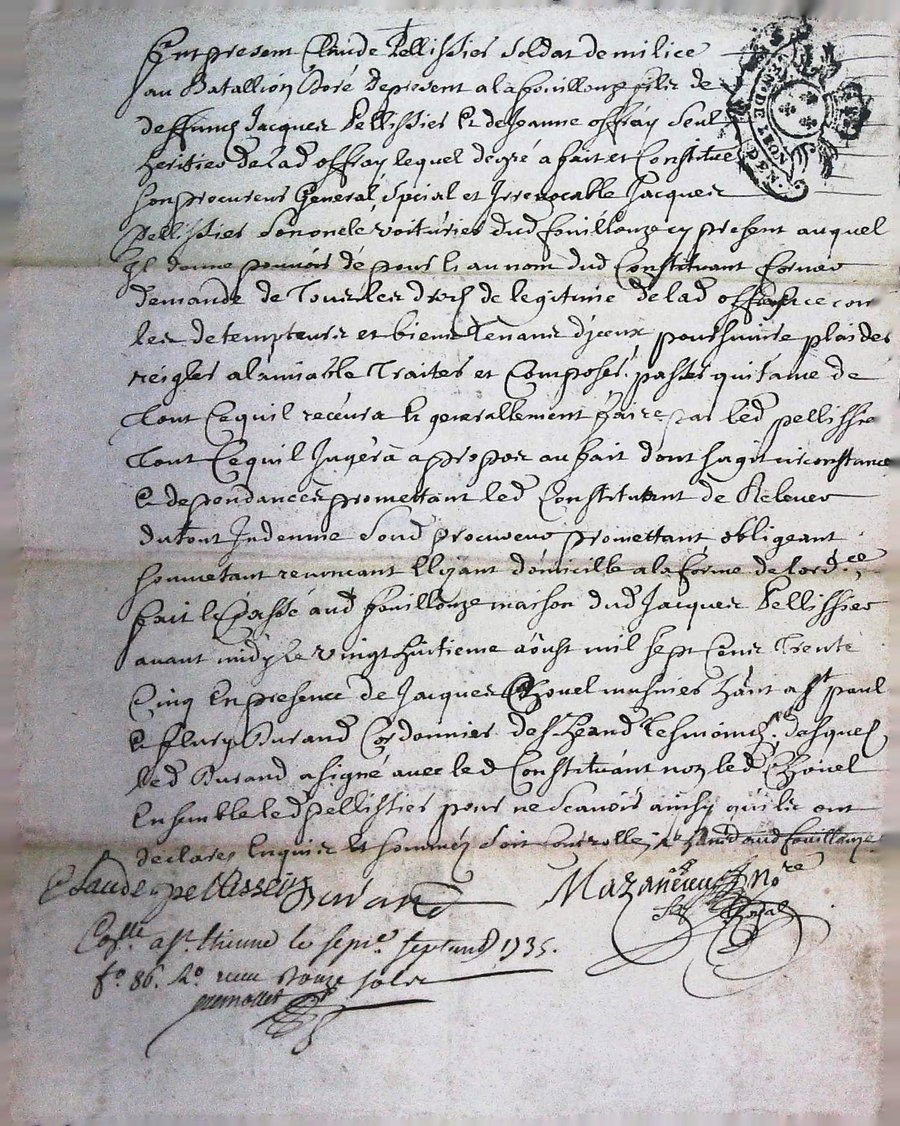 Fut present Claude Pellissier soldat de milice
au Batallion Doré de present a la fouillouze fils de
deffunct Jacques Pellissier et de Jeanne offray seul
heritier de lad offray lequel de gré a fait et Constitué
son procureur General, spécial et Irrevocable Jacques
Pellissier son oncle voiturier dud fouillouze cy present auquel
Il donne pouvoir de pour luy au nom dud Constituant former
demande de Tous les droits de legitime de lad offray contre
les detempteurs et biens Tenans d'iceux poursuivre plaider
reigler alamiable Traiter et Composer, passer quitance de
Tout Cequil recevra et generallement faire par led pellissier
Tout Cequil Jugera apropos au fait dont sagit circonstance
et dependances promettant led Constituant de Relever
du tout Indemne sond procureur promettant obligeant
soumetant renoncant Elizant domicille a la forme de lord.ce
fait et Passé aud fouillouze maison dud Jacques Pellissier
avant midy le vingt huitieme aoust mil sept Cens Trente
Cinq En presence de Jacques Chovel musnier a St paul
et fleury Durand Cordonnier de St heand Tesmoins desquels
led Durand a signé avec led Constituant non led Chovel
Ensemble led Pellissier pour ne scavoir ainsy quils ont
declaré Enquis et sommés soit controllé
Claude pellissier Durand
Mazancieu nore
Royal
Collé a St Etienne le sept.e septemb 1735.
fo. 86. Ro. recu Douze sols